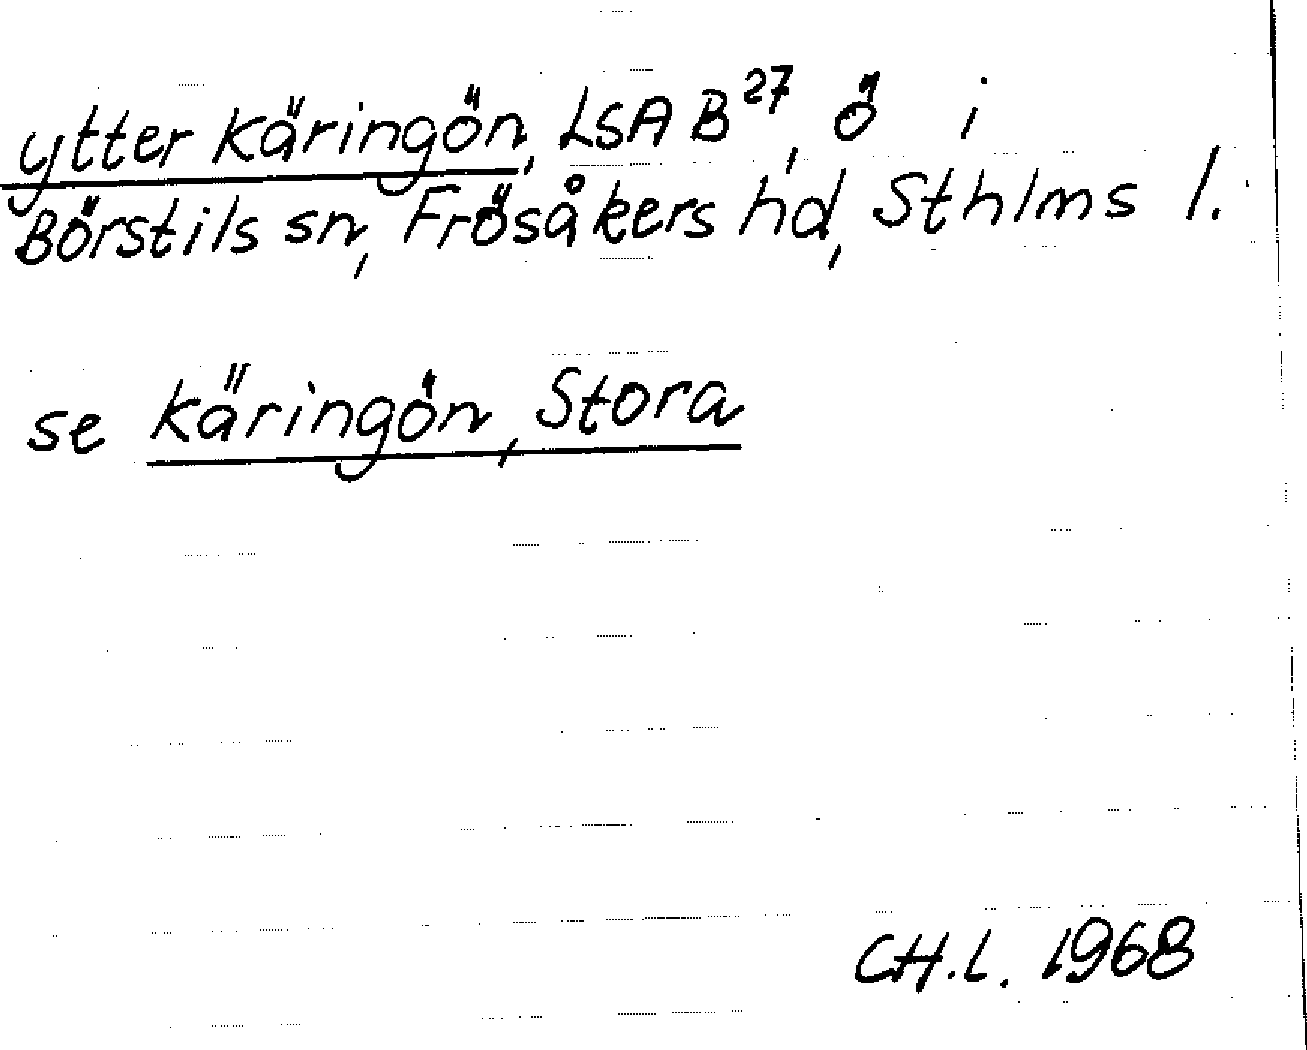 ytter käringön, LSA B 27, ö i
Börstils sn, Frösåkers hd, Sthlms l.
se käringön, Stora
CH.L. 1968